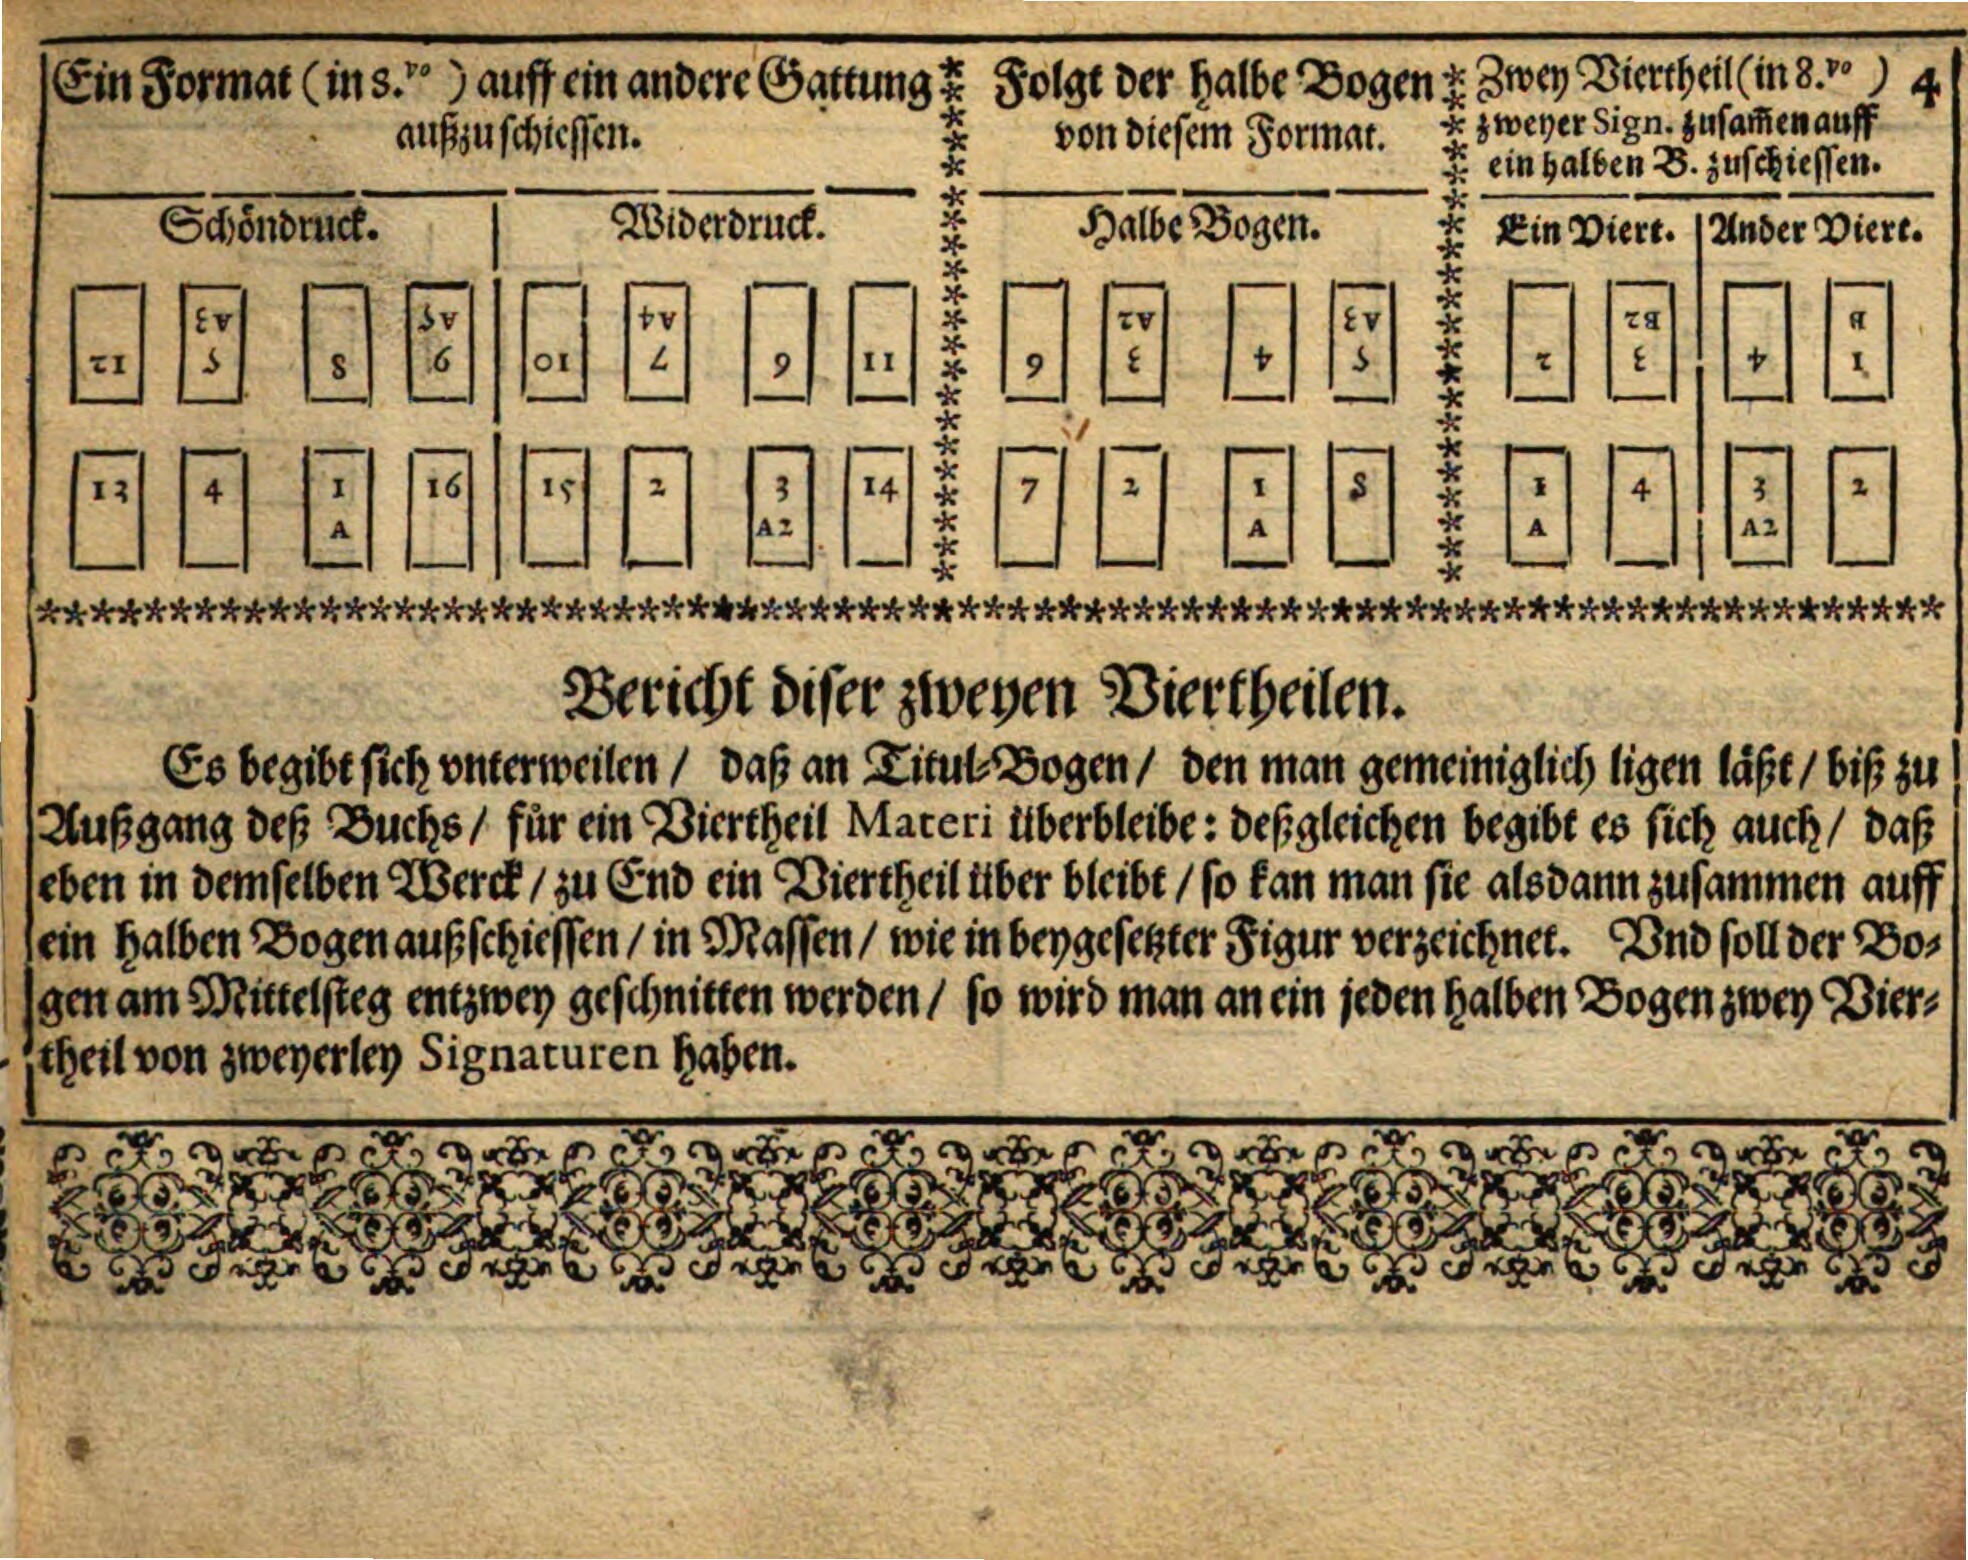 Ein Format (in 8.vo) auff ein andere Gattung
außzuschiessen.
Schöndruck.
A3 A5
12 5 8 9
13 4 1 16
A
Widerdruck.
A4
10 7 6 11
15 2 3 14
A2
Folgt der halbe Bogen
von diesem Format.
Halbe Bogen.
A2 A3
6 3 4 5
7 2 1 8
A
Zwey Viertheil (in 8.vo) 4
zweyer Sign. zusam̃en auff
ein halben B. zuschiessen.
Ein Viert.
B2
2 3
1 4
A
Ander Viert.
B
4 1
3 2
A2
Bericht diser zweyen Viertheilen.
Es begibt sich vnterweilen / daß an Titul-Bogen / den man gemeiniglich ligen läßt / biß zu
Außgang deß Buchs / für ein Viertheil Materi überbleibe: deßgleichen begibt es sich auch / daß
eben in demselben Werck / zu End ein Viertheil über bleibt / so kan man sie alsdann zusammen auff
ein halben Bogen außschiessen / in Massen / wie in beygesetzter Figur verzeichnet. Vnd soll der Bo-
gen am Mittelsteg entzwey geschnitten werden / so wird man an ein jeden halben Bogen zwey Vier-
theil von zweyerley Signaturen haben.